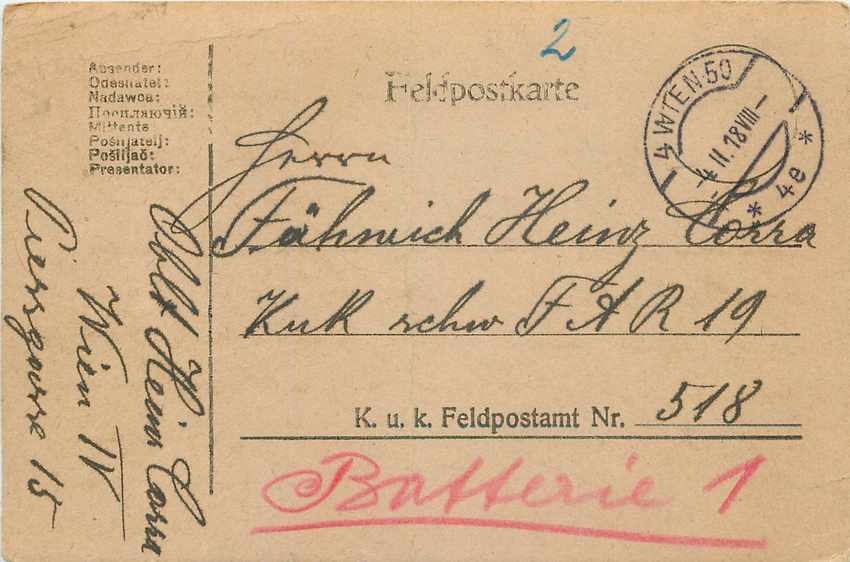 2
Feldpostkarte
Absender:
Odesilatel:
Nadawca:
Посилаючій:
Mittente
Pošnjatelj:
Pošiljač:
Presentator:
4 WIEN 50
4 II. 18 VIII–
* 4e *
Herrn
Fähnrich Heinz Corra
KuK schw F A R 19
K. u. k. Feldpostamt Nr. 518
Batterie 1
Oblt Heinr Corra
Wien IV
15